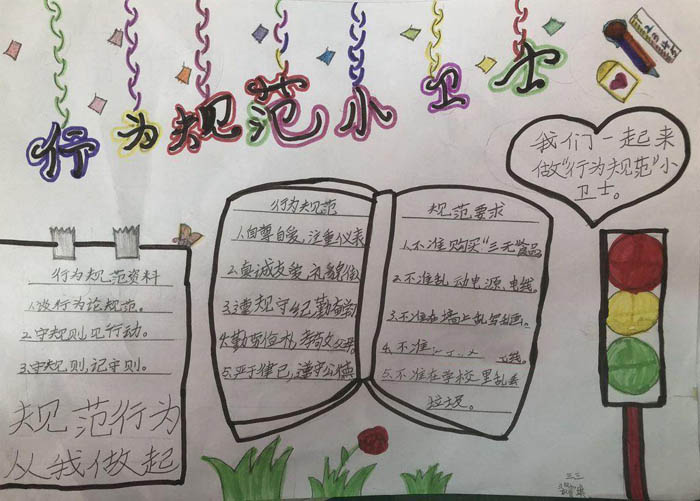 行为规范小卫士
我们一起来
做“行为规范”小
卫士。
行为规范资料
1.谈行为论规范。
2.守规则,见行动。
3.守规则,记守则。
规范行为
从我做起
行为规范
1.自尊自爱,注重仪表
2.真诚友爱,礼貌待
3.遵规守纪勤奋
4.勤劳俭朴,孝敬父母。
5.严于律己,遵守公德
规范要求
1.不准购买“三无食品
2.不准乱动电源、电线。
3.不准在墙上乱写乱画。
4.不准
钱。
5.不准在学校里乱丢
垃圾。